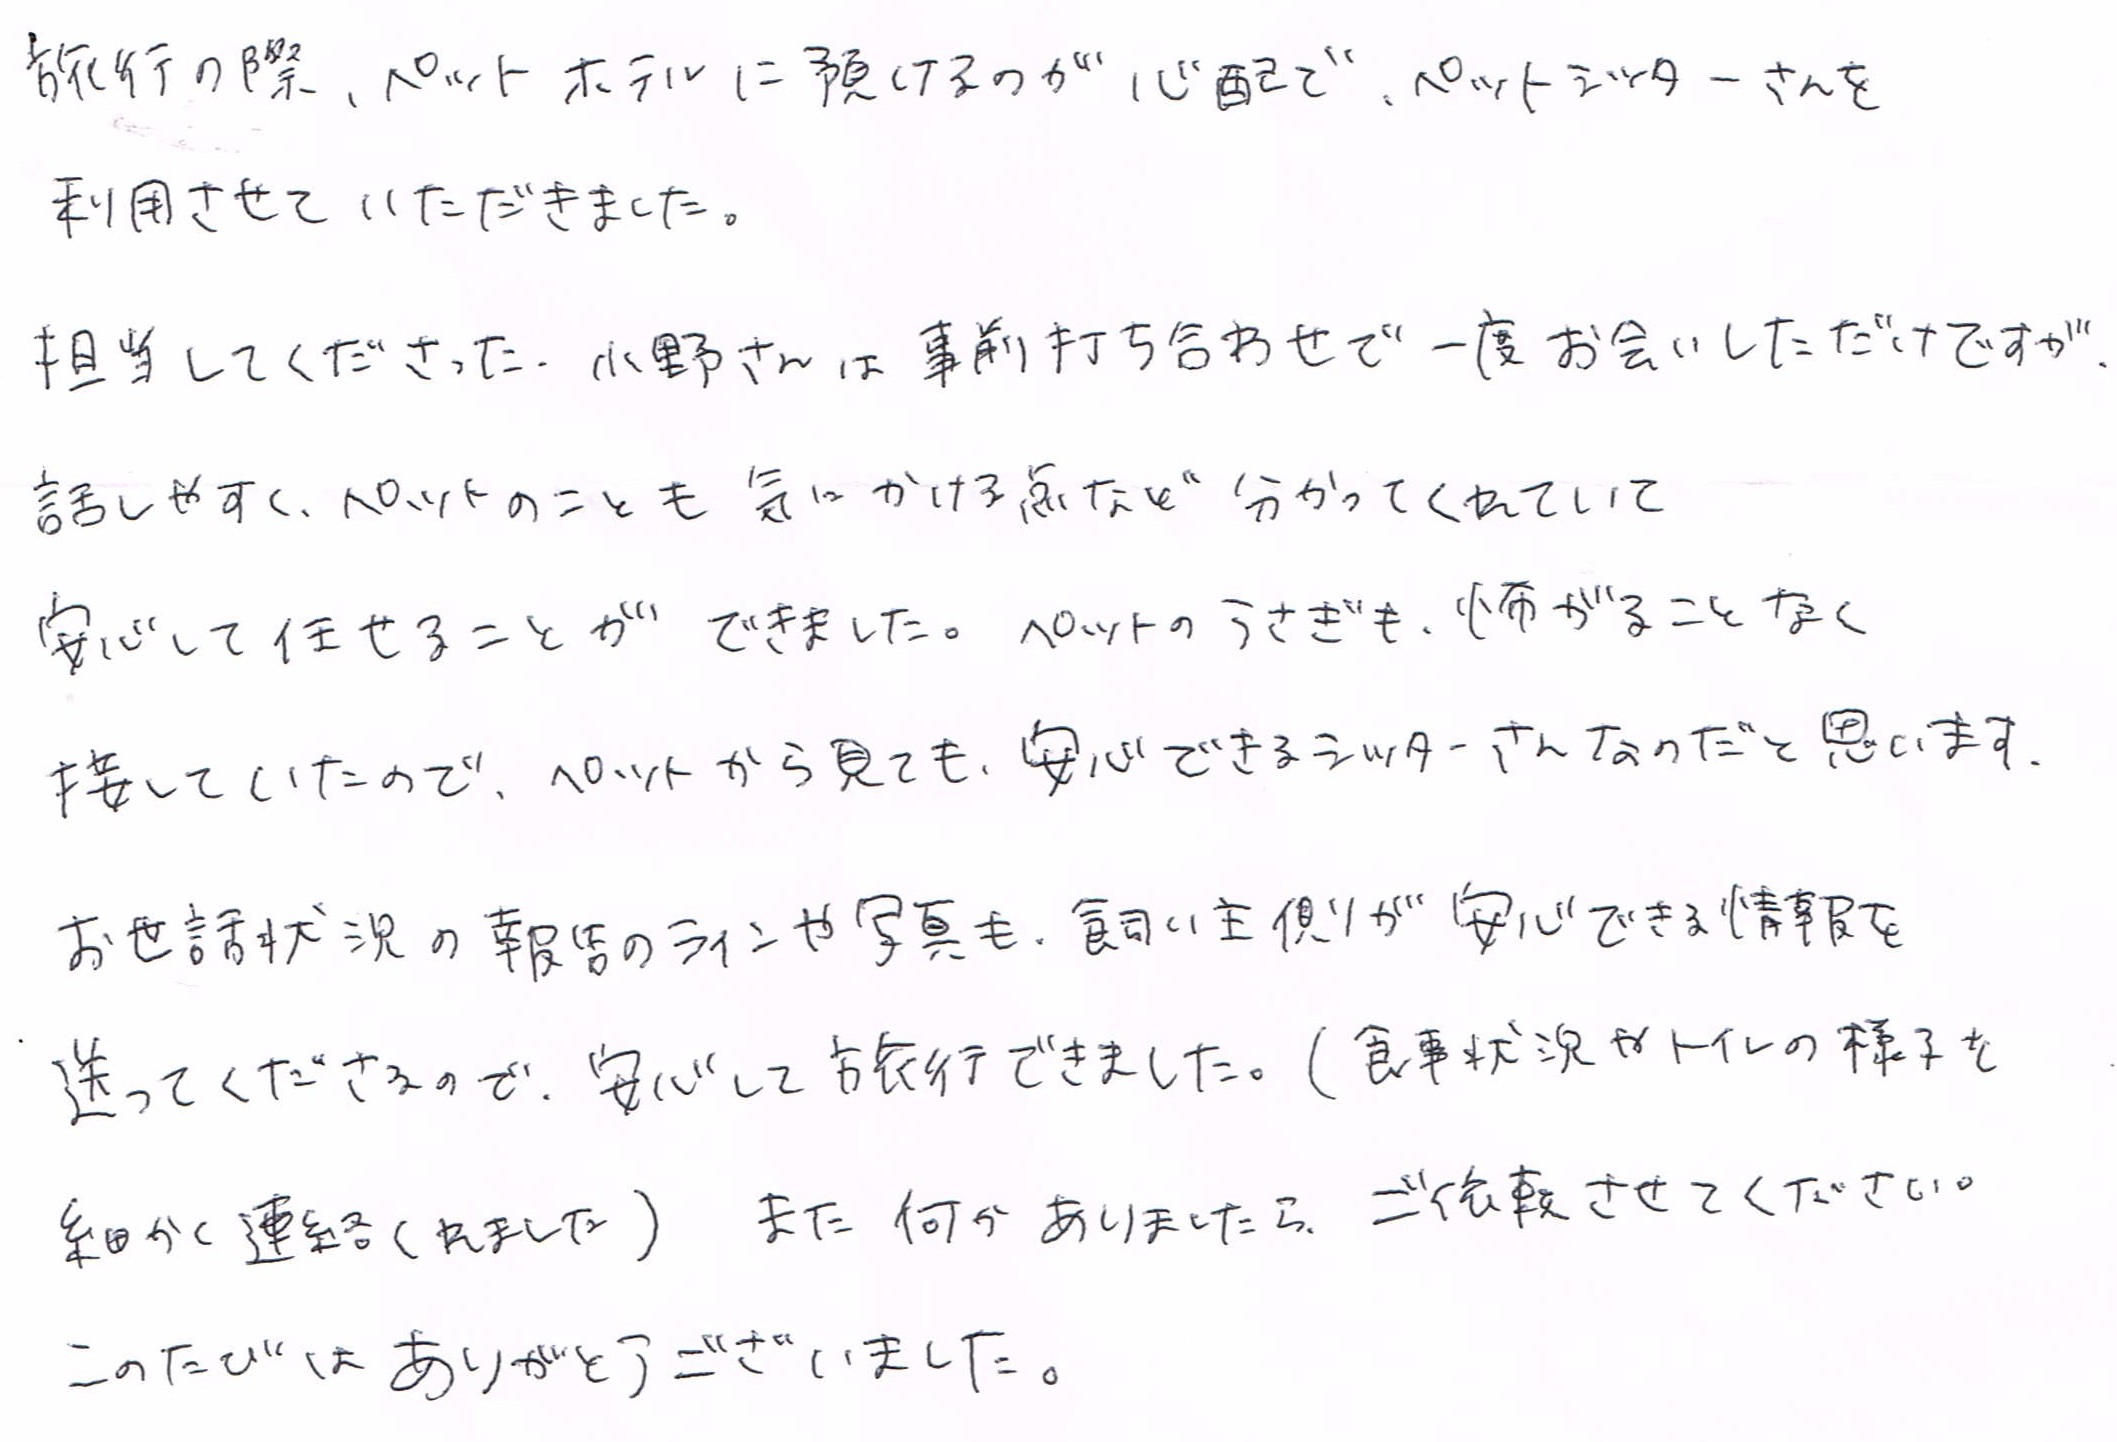 旅行の際、ペットホテルに預けるのが心配で、ペットシッターさんを
利用させていただきました。
担当してくださった、小野さんは事前打ち合わせで一度お会いしただけですが、
話しやすく、ペットのことも気にかける点など分かってくれていて
安心して任せることができました。ペットのうさぎも、怖がることなく
接していたので、ペットから見ても、安心できるシッターさんなのだと思います。
お世話状況の報告のラインや写真も、飼い主側が安心できる情報を
送ってくださるので、安心して旅行できました。(食事状況やトイレの様子を
細かく連絡くれました) また何かありましたら、ご依頼させてください。
このたびはありがとうございました。